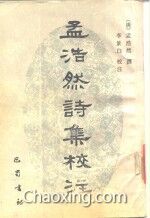 孟浩然詩集校注
(唐)孟浩然 撰
李景白 校注
巴蜀書社
Chaoxing.com